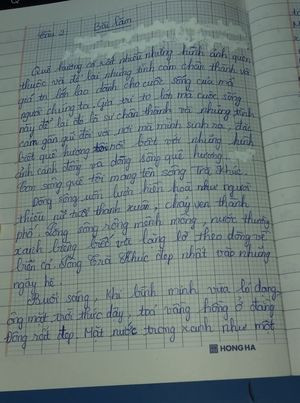 Câu 2: Bài làm
Quê hương có rất nhiều những hình ảnh quen
thuộc và để lại những tình cảm chân thành và
giá trị lớn lao dành cho cuộc sống của mỗi
người chúng ta. Giá trị to lớn mà cuộc sống
này để lại đó là sự chân thành và những tình
cảm gắn gũi đối với nơi mà mình sinh ra, đặc
biệt quê hương nổi bật với những hình
ảnh cánh đồng và dòng sông quê hương.
Con sông quê tôi mang tên sông Trà Khúc.
Dòng sông uốn lượn hiền hoà như người
thiếu nữ trời thanh xuân, chảy ven thành
phố. Dòng sông rộng mênh mông, nước thường
xanh trong biếc và lặng lờ theo dòng về
biển cả. Sông Trà Khúc đẹp nhất vào những
ngày hè.
Buổi sáng, khi bình minh vừa ló dạng
ông mặt trời thức dậy, toả vầng hồng ở đằng
Đông rất đẹp. Mặt nước trong xanh như một
HONG HA